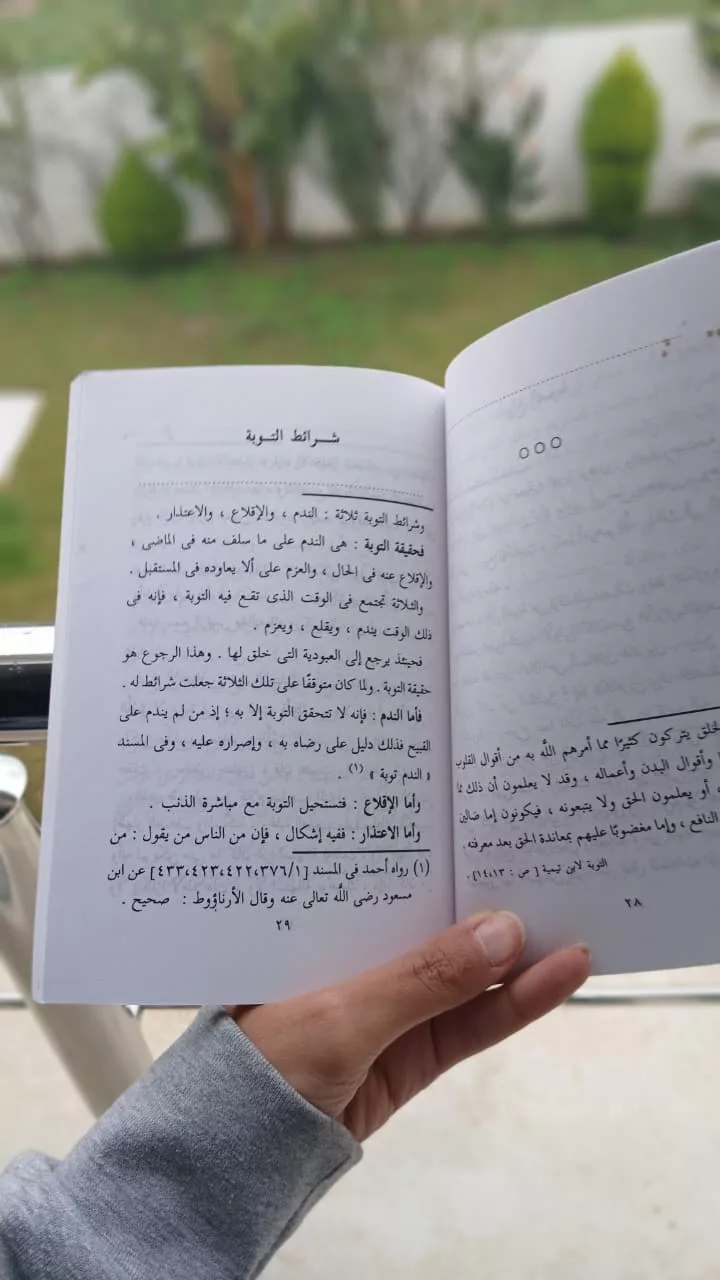 الخلق يتركون كثيرًا مما أمرهم الله به من أقوال القلوب
وأقوال البدن وأعماله ، وقد لا يعلمون أن ذلك مما
، أو يعلمون الحق ولا يتبعونه ، فيكونون إما ضالين
النافع ، وإما مغضوبًا عليهم بمعاندة الحق بعد معرفته .
التوبة لابن تيمية [ ص : ١٤،١٣] .
٢٨
شـرائط التـوبة
وشرائط التوبة ثلاثة : الندم ، والإقلاع ، والاعتذار .
فحقيقة التوبة : هى الندم على ما سلف منه فى الماضى ،
والإقلاع عنه فى الحال ، والعزم على ألا يعاوده فى المستقبل .
والثلاثة تجتمع فى الوقت الذى تقع فيه التوبة ، فإنه فى
ذلك الوقت يندم ، ويقلع ، ويعزم .
فحينئذ يرجع إلى العبودية التى خلق لها . وهذا الرجوع هو
حقيقة التوبة . ولما كان متوقفًا على تلك الثلاثة جعلت شرائط له .
فأما الندم : فإنه لا تتحقق التوبة إلا به ؛ إذ من لم يندم على
القبيح فذلك دليل على رضاه به ، وإصراره عليه ، وفى المسند
« الندم توبة » (١) .
وأما الإقلاع : فتستحيل التوبة مع مباشرة الذنب .
وأما الاعتذار : ففيه إشكال ، فإن من الناس من يقول : من
(١) رواه أحمد فى المسند [٤٣٣،٤٢٣،٤٢٢،٣٧٦/١] عن ابن
مسعود رضى الله تعالى عنه وقال الأرناؤوط : صحيح .
٢٩